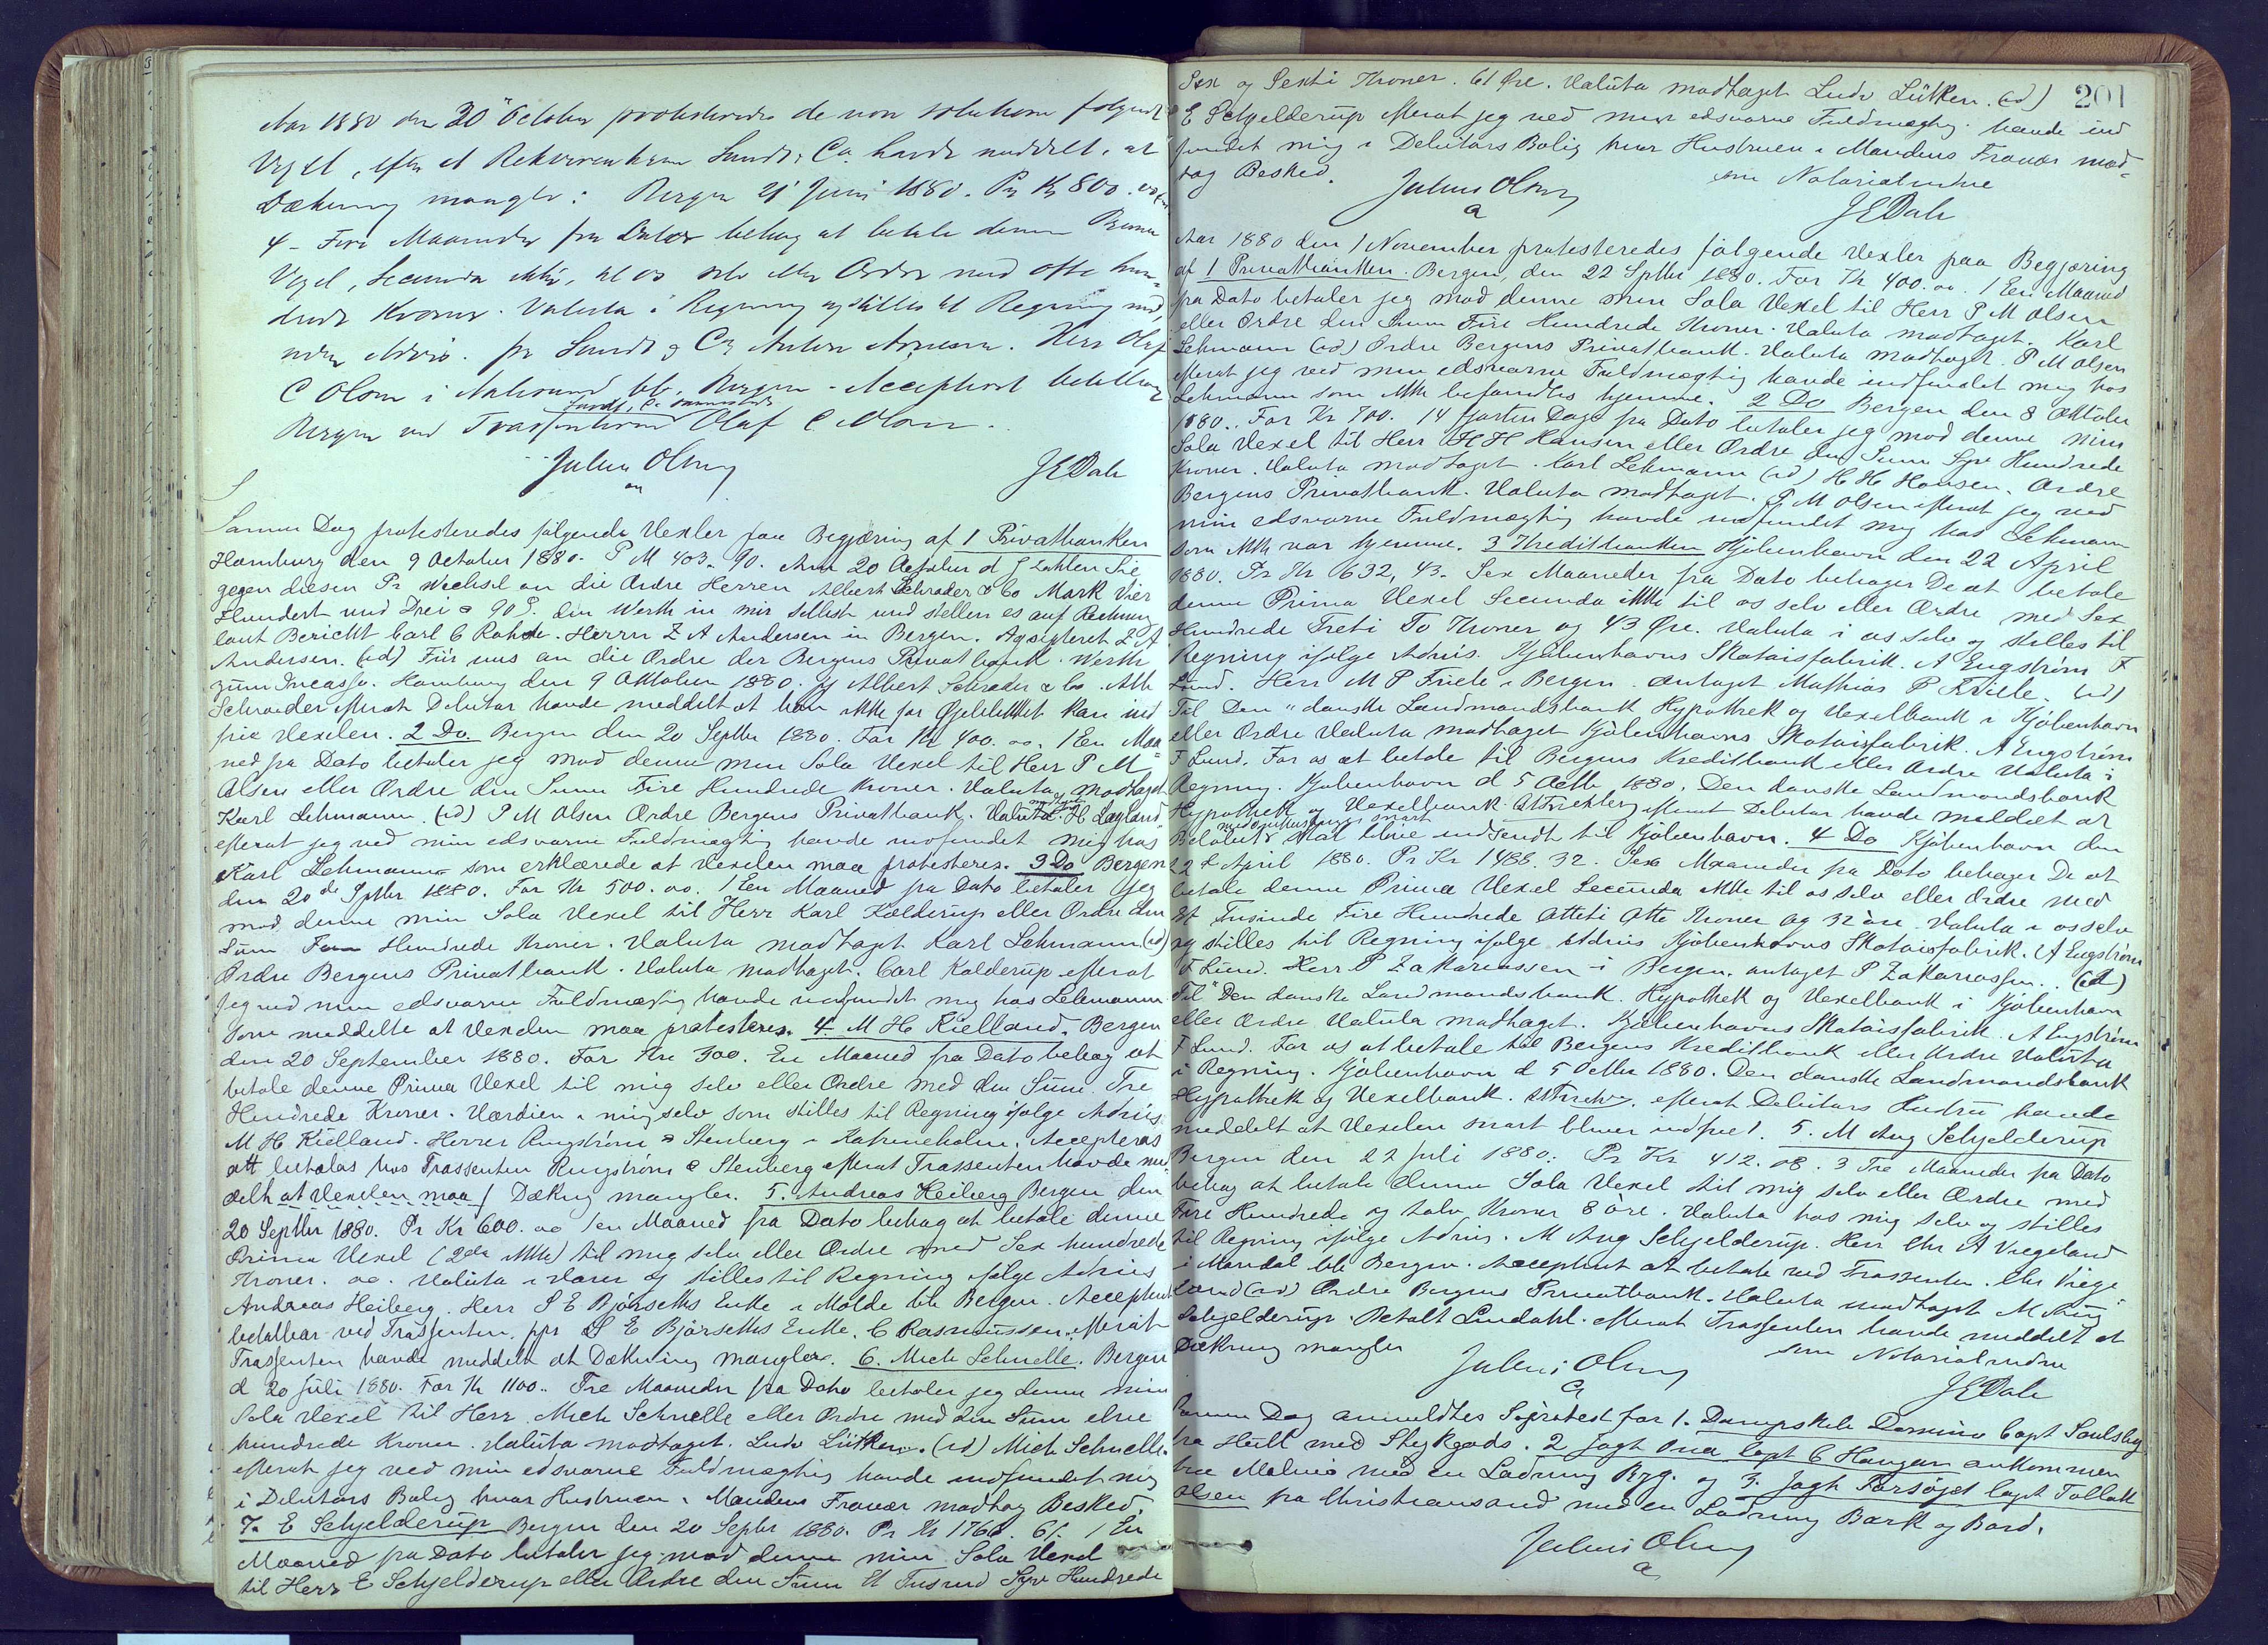 Aar 1880 den 20 October protesteredes de non solutione følgende
Vexel, efter at Rekvirenterne Sundt & Co. havde meddelt, at
Dækning mangler: Bergen 21 Juni 1880. Pr Kr 800.
4 – Fire Maaneder fra Dato behag at betale denne Prima
Vexel, Secunda ikke, til os selv eller Ordre med otte hun-
drede Kroner. Valuta i Regning og stilles til Regning
uden Advis. pr Sundt & Co Anton Arnesen. Herr Olaf
C Olsen i Aalesund bb. Bergen – Accepteret betalbar
Sundt, Co
Bergen ved Trassenterne Olaf C Olsen.
Julius Olsen
JEDahl
Samme Dag protesteredes følgende Vexler paa Begjæring af 1 Privatbanken
Hamburg den 9 October 1880. P M 403. 90. Am 20 October d J zahlen Sie
gegen diesen Pr Wechsel an die Ordre Herren Albert Schrader & Co Mark Vier
Hundert und Drei & 90 P. den Werth in mir selbst und stellen es auf Rechnung
laut Bericht Carl C Rohde. Herrn Z A Andersen in Bergen. Acqsigteret Z A
Andersen. (id) Für uns an die Ordre der Bergens Privatbank. Werth
zum Incasso. Hamburg den 9 Oktober 1880. Albert Schrader & Co. Alb
Schrader efterat Debitor havde meddelt at han ikke for Øjeblikket kan ind
frie Vexelen. 2 Do. Bergen den 20 Septbr 1880. For Kr 400. oo. 1 En Maa
ned fra Dato betaler jeg mod denne min Sola Vexel til Herr P M
Olsen eller Ordre den Sum Fire Hundrede Kroner. Valuta modtaget
Karl Lehmann. (id) P M Olsen Ordre Bergens Privatbank. Valuta H Lagland
efterat jeg ved min edsvorne Fuldmægtig havde indfundet mig hos
Karl Lehmann som erklærede at Vexelen maa protesteres. 3 Do Bergen
den 20de Septbr 1880. For Kr 500. oo. 1 En Maaned fra Dato betaler jeg
mod denne min Sola Vexel til Herr Karl Kalderup eller Ordre den
Sum Fem Hundrede Kroner. Valuta modtaget Karl Lehmann (id)
Ordre Bergens Privatbank. Valuta modtaget. Carl Kalderup efterat
jeg ved min edsvorne Fuldmægtig havde indfundet mig hos Lehmann
som meddelte at Vexelen maa protesteres. 4. M H Kielland. Bergen
den 20 September 1880. For Kr 300. En Maaned fra Dato behag at
betale denne Prima Vexel til mig selv eller Ordre med den Sum Tre
Hundrede Kroner. Værdien i mig selv som stilles til Regning ifølge Advis.
M H Kielland. Herrer Ringstrøm & Stenberg i Katrineholm. Accepteras
att betalas hos Trassenten Ringstrøm & Stenberg efterat Trassenten havde med
delt at Vexelen maa / Dækng mangler. 5. Andreas Heiberg Bergen den
20 Septbr 1880. Pr Kr 600. oo 1 en Maaned fra Dato behag at betale denne
Prima Vexel (2da ikke) til mig selv eller Ordre med Sex hundrede
Kroner. oo. Valuta i Varer og stilles til Regning ifølge Advis
Andreas Heiberg. Herr S E Bjørseths Enke i Molde bb Bergen. Accepteret
betalbar ved Trassenten. ppr S E Bjørseths Enke. C Rasmussen. efterat
Trassenten havde meddelt at Dækning mangler. 6. Mich Schnelle. Bergen
d 20 Juli 1880. For Kr 1100.. Tre Maaneder fra Dato betaler jeg denne min
Sola Vexel til Herr Mich Schnelle eller Ordre med den Sum elve
hundrede Kroner. Valuta modtaget. Ludv Lütken. (id) Mich Schnelle.
efterat jeg ved min edsvorne Fuldmægtig havde indfundet mig
i Debitors Bolig hvor Hustruen i Mandens Fravær modtog Besked.
7. E Schjelderup Bergen den 20 Septbr 1880. Pr Kr 1766. 61. 1 En
Maaned fra Dato betaler jeg mod denne min Sola Vexel
til Herr E Schjelderup eller Ordre den Sum Et Tusend Syv Hundrede
201
Sex og Sexti Kroner. 61 Øre. Valuta modtaget Ludv Lütken. (id)
E Schjelderup efterat jeg ved min edsvorne Fuldmægtig havde ind
fundet mig i Debitors Bolig hvor Hustruen i Mandens Fravær mod-
tog Besked.
Julius Olsen
a
som Notarialvidne
JEDahl
Aar 1880 den 1 November protesteredes følgende Vexler paa Begjæring
af 1 Privatbanken. Bergen, den 22 Sptbr 1880. For Kr 400. oo. 1 En Maaned
fra Dato betaler jeg mod denne min Sola Vexel til Herr P M Olsen
eller Ordre den Sum Fire Hundrede Kroner. Valuta modtaget. Karl
Lehmann (id) Ordre Bergens Privatbank. Valuta modtaget. P M Olsen
efterat jeg ved min edsvorne Fuldmægtig havde indfundet mig hos
Lehmann som ikke befandtes hjemme. 2 Do Bergen den 8 Oktober
1880. For Kr 700. 14 fjorten Dage fra Dato betaler jeg mod denne min
Sola Vexel til Herr H H Hansen eller Ordre den Sum Syv Hundrede
Kroner. Valuta modtaget. Karl Lehmann (id) H H Hansen. Ordre
Bergens Privatbank. Valuta modtaget. P M Olsen efterat jeg ved
min edsvorne Fuldmægtig havde indfundet mig hos Lehmann
som ikke var hjemme. 3 Kreditbanken Kjøbenhavn den 22 April
1880. Pr Kr 632, 43. Sex Maaneder fra Dato behager De at betale
denne Prima Vexel Secunda ikke til os selv eller Ordre med Sex
Hundrede Treti To Kroner og 43 Øre. Valuta i os selv og stilles til
Regning ifølge Advis. Kjøbenhavns Skotøisfabrik. A Engstrøm F
Lund. Herr M P Friele i Bergen. antaget Mathias P Friele. (id)
Til Den "danske Landmandsbank Hypothek og Vexelbank i Kjøbenhavn
eller Ordre Valuta modtaget Kjøbenhavns Skotøisfabrik. A Engstrøm
F Lund. For os at betale til Bergens Kreditbank eller Ordre Valuta i
Regning. Kjøbenhavn d 5 Octb 1880. Den danske Landmandsbank
Hypothek og Vexelbank. efterat Debitor havde meldet at
Beløbet skal blive indsendt til Kjøbenhavn. 4 Do Kjøbenhavn den
22 April 1880. Pr Kr 1488. 32. Sex Maaneder fra Dato behager De at
betale denne Prima Vexel Secunda ikke til os selv eller Ordre med
Et Tusinde Fire Hundrede Otteti Otte Kroner og 32 øre Valuta i os selv
og stilles til Regning ifølge Advis Kjøbenhavns Skotøisfabrik. A Engstrøm
F Lund. Herr P Zakariassen i Bergen. antaget P Zakariassen.. (id)
Til "Den danske Landmandsbank. Hypothek og Vexelbank i Kjøbenhavn
eller Ordre Valuta modtaget. Kjøbenhavns Skotøisfabrik. A Engstrøm
F Lund. For os at betale til Bergens Kreditbank eller Ordre Valuta
i Regning. Kjøbenhavn d 5 Octbr 1880. Den danske Landmandsbank
Hypothek og Vexelbank. efterat Debitors Hustru havde
meddelt at Vexelen snart bliver indfriet. 5. M Aug Schjelderup
Bergen den 22 Juli 1880: Pr Kr 412. 08. 3 Tre Maaneder fra Dato
behag at betale denne Sola Vexel til mig selv eller Ordre med
Fire Hundrede og tolv Kroner 8 øre. Valuta hos mig selv og stilles
til Regning ifølge Advis. M Aug Schjelderup. Herr Chr A Viegeland
i Mandal bb Bergen. Accepteret at betale ved Trassenten. Chr Viege
land (id) Ordre Bergens Privatbank. Valuta modtaget M Aug
Schjelderup. Betalt Lindahl. efterat Trassenten havde meddelt at
Dækning mangler
Julius Olsen
a
som Notarialvidne
JEDahl
Samme Dag anmeldtes Søprotest for 1. Dampskib Domino Capt Soulsby
fra Hull med Stykgods. 2 Jagt Ona Capt C Haugan ankommen
fra Malmø med en Ladning Rug. og 3. Jagt Forsøget Capt Tollak
Olsen fra Christiansand med en Ladning Bark og Bord.
Julius Olsen
a